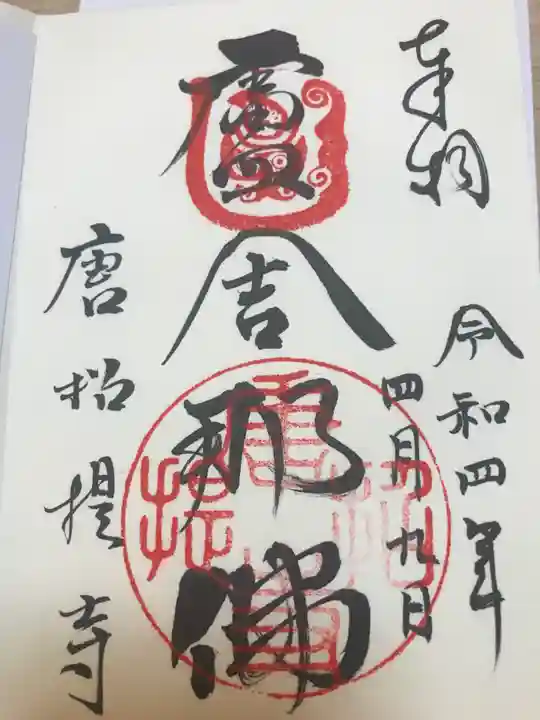 奉拝
令和四年
四月九日
盧舎那佛
唐招提寺
唐招提寺